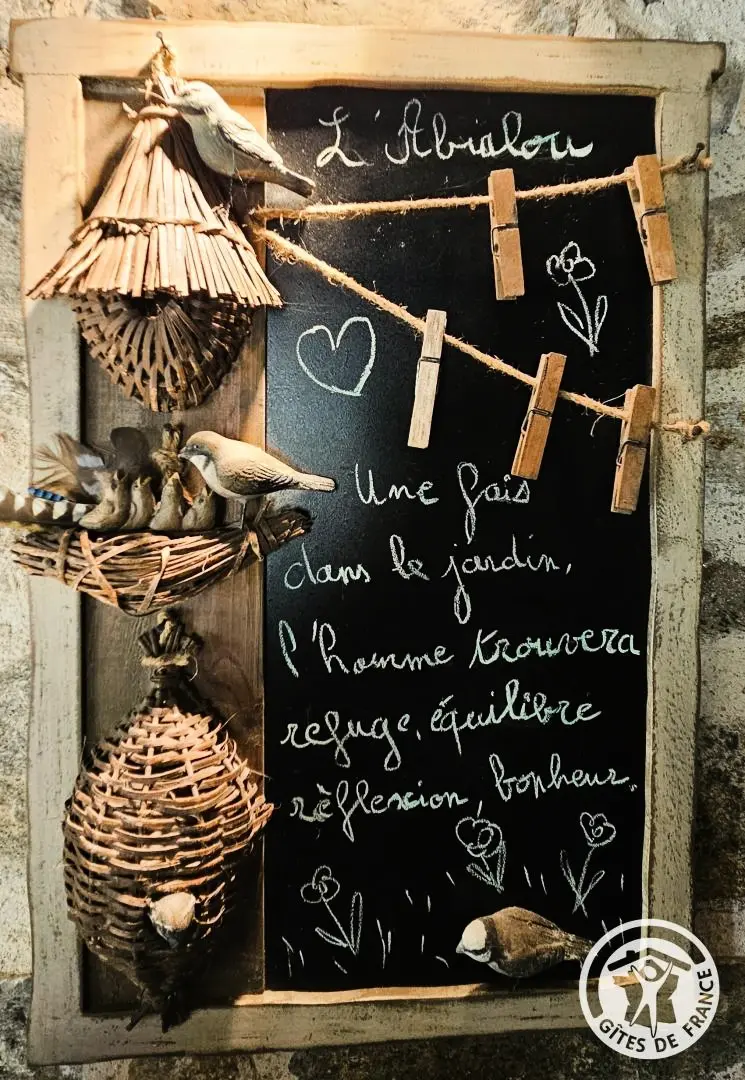 L'Abialou
Une fois
dans le jardin,
l'homme trouvera
refuge, équilibre
rèflexion, bonheur.
GÎTES DE FRANCE